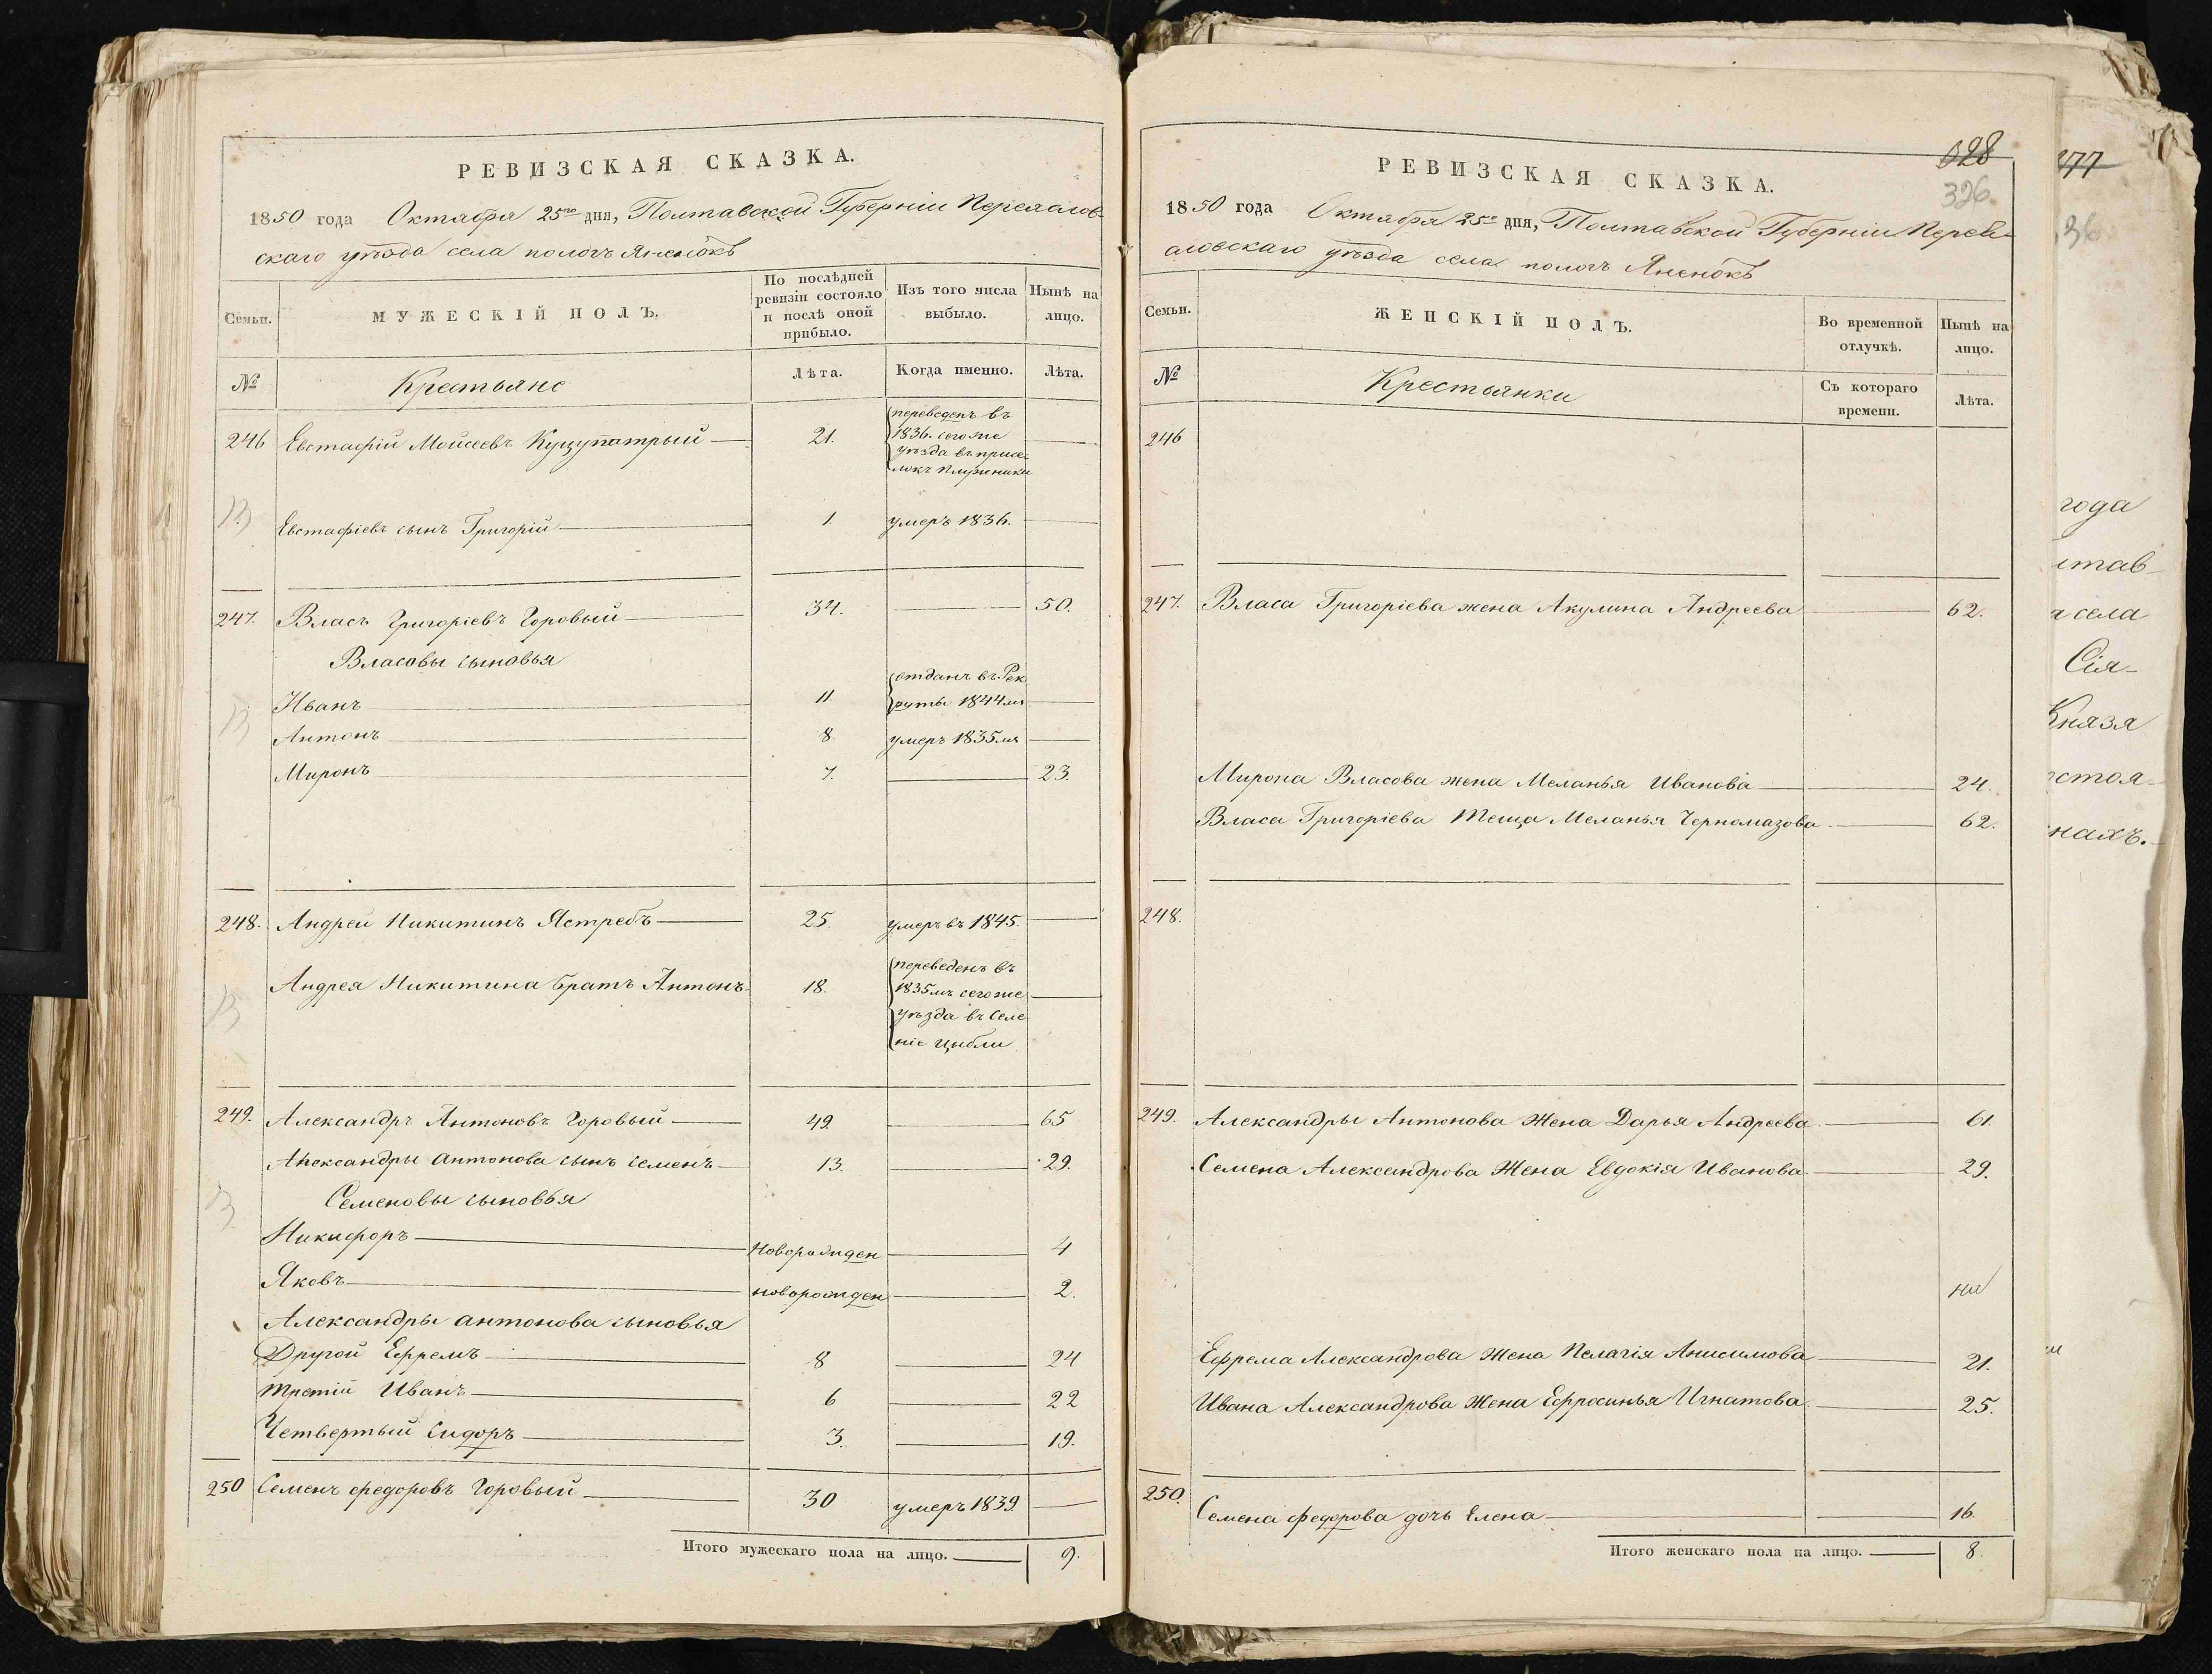 РЕВИЗСКАЯ СКАЗКА.
1850 года Октября 25го дня, Полтавской Губерніи Переяслов-
скаго уѣзда села пологъ Яненокъ
Семьи.
МУЖЕСКІЙ ПОЛЪ.
По послѣдней ревизіи состояло и послѣ оной прибыло.
Изъ того числа выбыло.
Нынѣ на лицо.
№
Крестьяне
Лѣта.
Когда именно.
Лѣта.
246 Евстафій Мойсеевъ Куцупатрый 21. переведенъ въ
1836. сегоже
уѣзда въ присе-
локъ Плужники
Евстафіевъ сынъ Григорій 1. умеръ 1836.
247. Власъ Григоріевъ Горовый 34. 50.
Власовы сыновья
Иванъ 11. отданъ въ Рек
руты 1844мъ
Антонъ 8. умеръ 1835мъ
Миронъ 7. 23.
248. Андрей Никитинъ Ястребъ 25. умеръ въ 1845.
Андрея Никитина братъ Антонъ 18. переведенъ въ
1835мъ сегоже
уѣзда въ Селе
ніе Цыбли
249. Александръ Антоновъ Горовый 49. 65
Александры Антонова сынъ Семенъ 13. 29.
Семеновы сыновья
Никифоръ Новорожден 4
Яковъ новорожден 2.
Александры антонова сыновья
Другой Ефремъ 8 24
третій Иванъ 6 22
Четвертый Сидоръ 3. 19.
250 Семенъ федоровъ Горовый 30 умеръ 1839
Итого мужескаго пола на лицо. 9.
328
326.
РЕВИЗСКАЯ СКАЗКА.
1850 года Октября 25го дня, Полтавской Губерніи Переяс-
аловскаго уѣзда села пологъ Яненокъ
Семьи.
ЖЕНСКІЙ ПОЛЪ.
Во временной отлучкѣ.
Нынѣ на лицо.
№
Крестьянки
Съ котораго времени.
Лѣта.
246
247. Власа Григоріева жена Акулина Андреева 62.
Мирона Власова жена Меланья Иванова 24.
Власа Григоріева теща Меланья Черномазова 62.
248.
249. Александры Антонова Жена Дарья Андреева 61.
Семена Александрова Жена Евдокія Иванова 29.
Ефрема Александрова Жена Пелагія Анисимова 21.
Ивана Александрова Жена Ефросинья Игнатова 25.
250. Семена федорова дочь Елена 16.
Итого женскаго пола на лицо. 8.
77
36
года
тав-
села
Сія-
Князя
стоя-
нахъ.